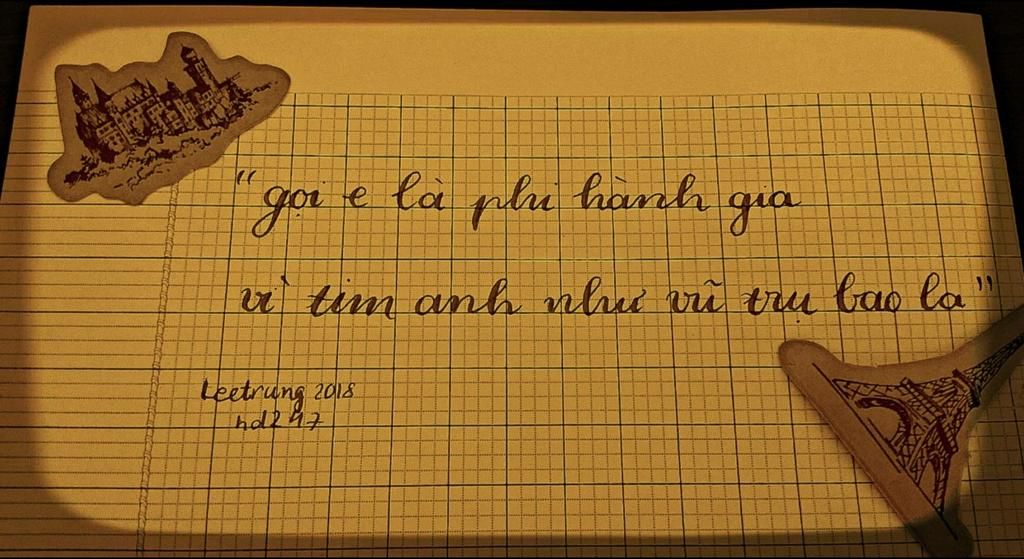 "gọi e là phi hành gia
vì tim anh như vũ trụ bao la"
Leetrung 2018
hd247